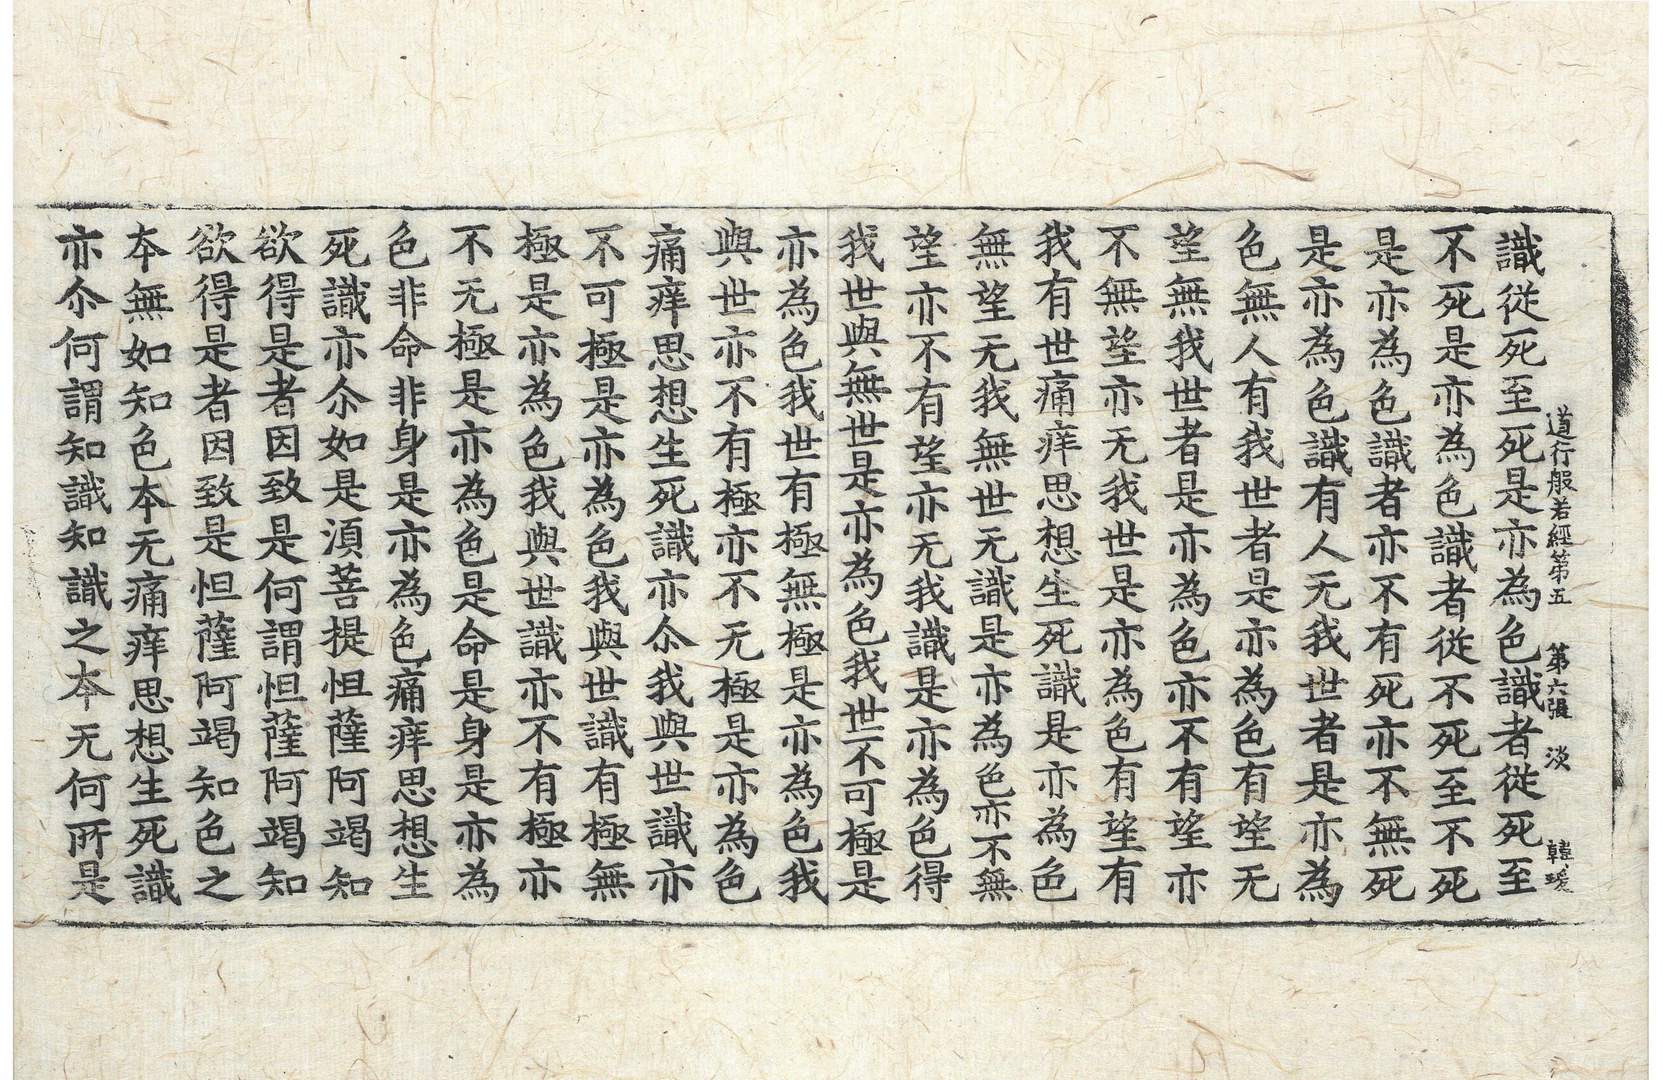 道行般若經第五 第六張 淡 韓瑗
識從死至死是亦為色識者從死至
不死是亦為色識者從不死至不死
是亦為色識者亦不有死亦不無死
是亦為色識有人无我世者是亦為
色無人有我世者是亦為色有望无
望無我世者是亦為色亦不有望亦
不無望亦无我世是亦為色有望有
我有世痛痒思想生死識是亦為色
無望无我無世无識是亦為色亦不無
望亦不有望亦无我識是亦為色得
我世與無世是亦為色我世不可極是
亦為色我世有極無極是亦為色我
與世亦不有極亦不无極是亦為色
痛痒思想生死識亦尒我與世識亦
不可極是亦為色我與世識有極無
極是亦為色我與世識亦不有極亦
不无極是亦為色是命是身是亦為
色非命非身是亦為色痛痒思想生
死識亦尒如是湏菩提怛薩阿竭知
欲得是者因致是何謂怛薩阿竭知
欲得是者因致是怛薩阿竭知色之
本無如知色本无痛痒思想生死識
亦尒何謂知識知識之本无何所是